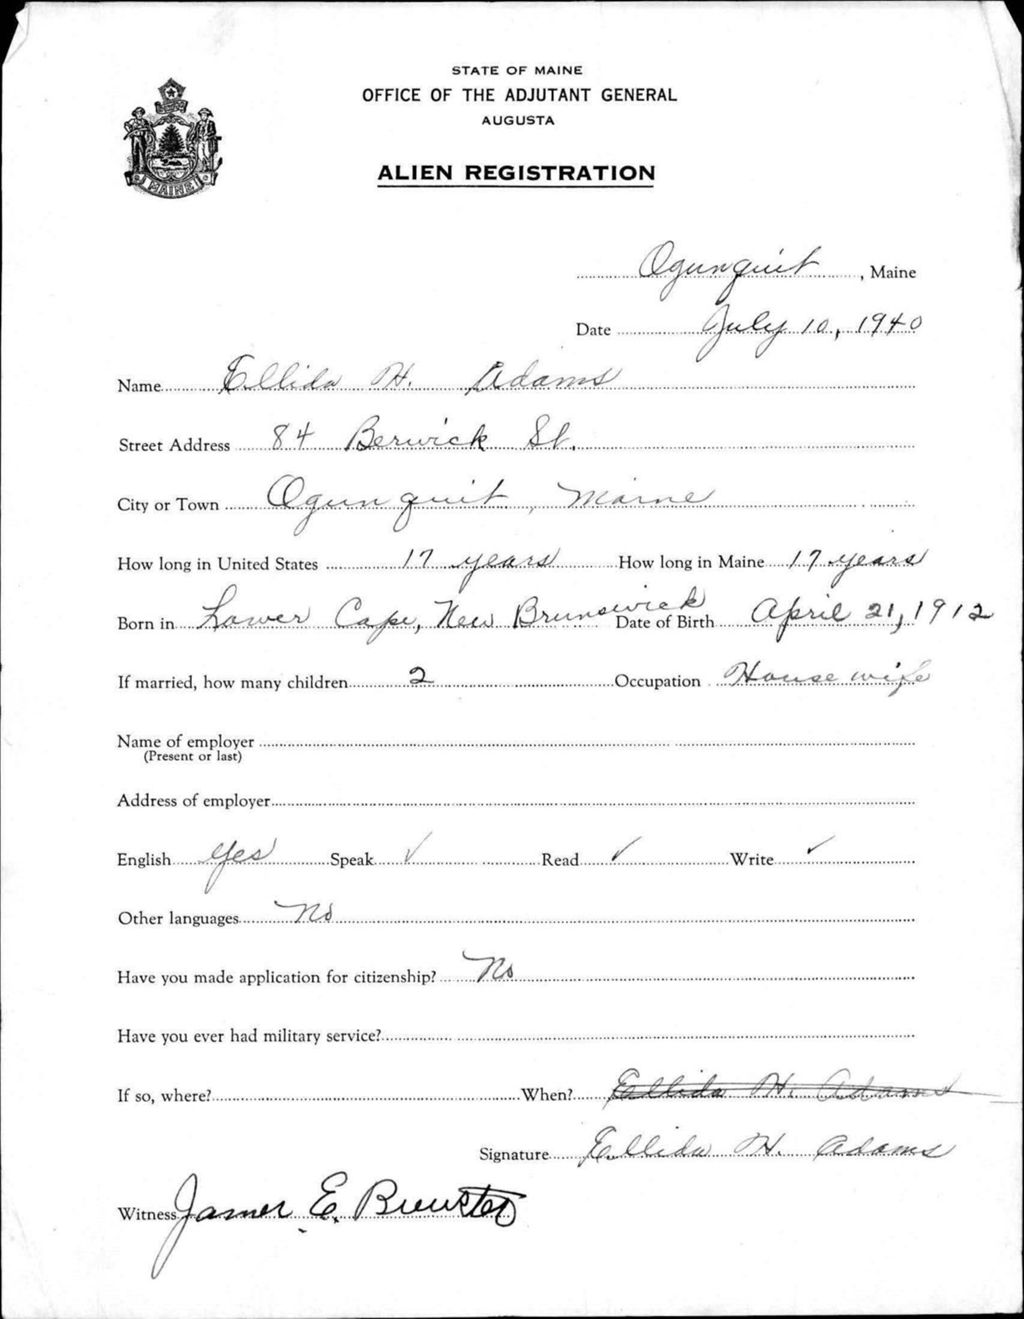 STATE OF MAINE
OFFICE OF THE ADJUTANT GENERAL
AUGUSTA
ALIEN REGISTRATION
MAINE
Ogunquit, Maine
Date July 10, 1940
Name Ellida H. Adams
Street Address 84 Berwick St.
City or Town Ogunquit, Maine
How long in United States 17 years How long in Maine 17 years
Born in Lower Cape, New Brunswick Date of Birth April 21, 1912
If married, how many children 2 Occupation Housewife
Name of employer
(Present or last)
Address of employer
English Yes Speak ✓ Read ✓ Write ✓
Other languages No
Have you made application for citizenship? No
Have you ever had military service?
If so, where? When? Ellida H. Adams
Signature Ellida H. Adams
Witness James E. Brewster